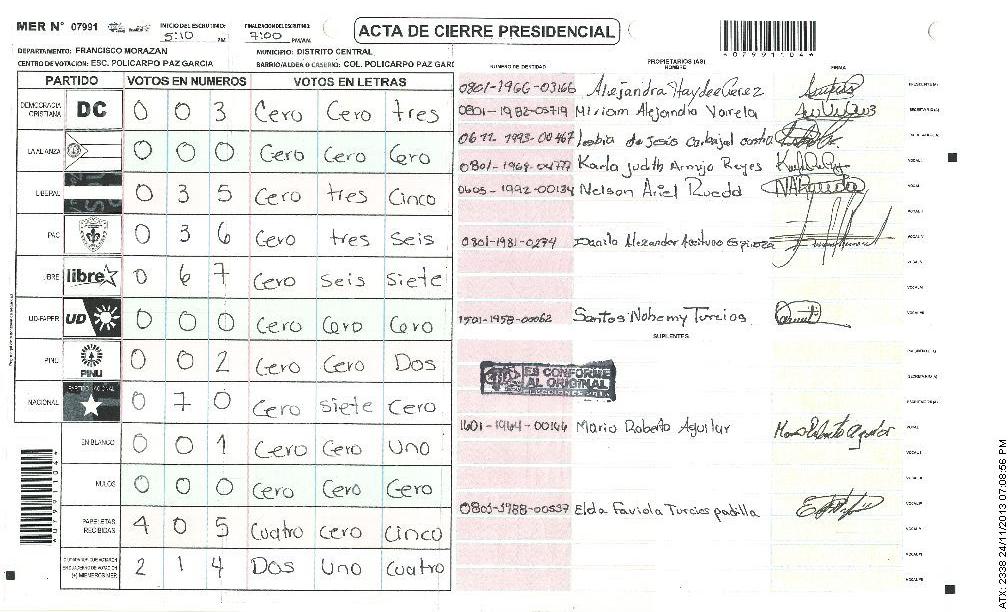 MER N° 07991
INICIO DEL ESCRUTINIO: 5:10 PM
FINALIZACION DEL ESCRUTINIO: 7:00 PM/AM
ACTA DE CIERRE PRESIDENCIAL
4079911044
DEPARTAMENTO: FRANCISCO MORAZAN
MUNICIPIO: DISTRITO CENTRAL
CENTRO DE VOTACION: ESC. POLICARPO PAZ GARCIA
BARRIO/ALDEA O CASERIO: COL. POLICARPO PAZ GARC
PARTIDO VOTOS EN NUMEROS VOTOS EN LETRAS
DEMOCRACIA CRISTIANA DC 0 0 3 Cero Cero tres
LA ALIANZA 0 0 0 Cero Cero Cero
LIBERAL 0 3 5 Cero tres Cinco
PAC 0 3 6 Cero tres Seis
LIBRE libre 0 6 7 Cero Seis Siete
UD-FAPER UD 0 0 0 Cero Cero Cero
PINU PINU 0 0 2 Cero Cero Dos
NACIONAL PARTIDO NACIONAL 0 7 0 Cero siete Cero
EN BLANCO 0 0 1 Cero Cero Uno
NULOS 0 0 0 Cero Cero Cero
PAPELETAS RECIBIDAS 4 0 5 Cuatro cero cinco
2 1 4 Dos Uno Cuatro
(+) MIEMBROS MER
NUMERO DE IDENTIDAD
PROPIETARIOS (AS)
NOMBRE
FIRMA
0801-1966-03166 Alejandra Haydee
0801-1982-05719 Miriam Alejandra Varela
0611 1993-00467 de Jesús
0801-1969-04777 Karla Judith Armijo Reyes
0605-1992-00134 Nelson Ariel
0801-1981-0274 Danilo Alexander Aceituno Espinoza
1501-1958-00062 Santos Nohemy Turcios
SUPLENTES
ES CONFORME
AL ORIGINAL
ELECCIONES 2013
1601-1964-00166 Mario Roberto Aguilar
Elda Faviola Turcios padilla
ATX: 2338 24/11/2013 07:08:56 PM